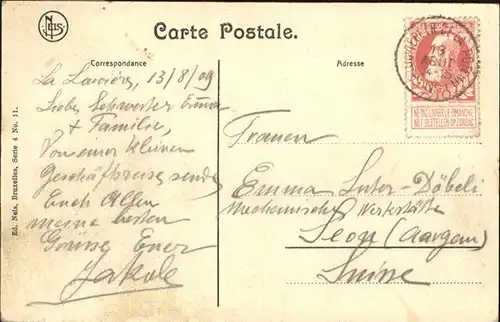 NELS
Carte Postale.
Correspondance
Adresse
La Louvière, 13/8/09
Liebe Schwester Emma
& Familie,
Von einer kleinen
Geschäftsreise sende
Euch Allen
meine besten
Grüsse Euer
Jakob
Frauen
Emma Suter-Döbeli
Mechanische Werkstätte
Seon (Aargau)
Suisse
13
AOUT
NE PAS LIVRER LE DIMANCHE
NIET BESTELLEN OP ZONDAG
Ed. Nels, Bruxelles, Serie 4 No. 11.